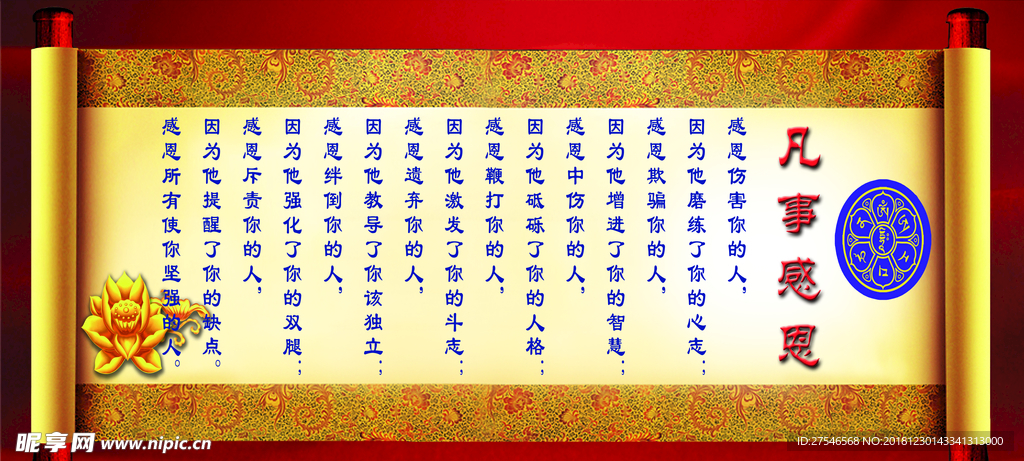 凡事感恩
感恩伤害你的人，
因为他磨练了你的心志；
感恩欺骗你的人，
因为他增进了你的智慧；
感恩中伤你的人，
因为他砥砾了你的人格；
感恩鞭打你的人，
因为他激发了你的斗志；
感恩遗弃你的人，
因为他教导了你该独立；
感恩绊倒你的人，
因为他强化了你的双腿；
感恩斥责你的人，
因为他提醒了你的缺点。
感恩所有使你坚强的人。
昵享网 www.nipic.cn
ID:27546568 NO:20181230143341313000